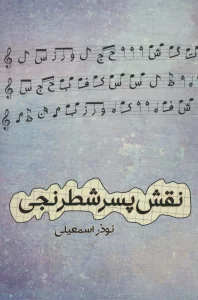 نقش پسر شطرنجی
نوذر اسمعیلی